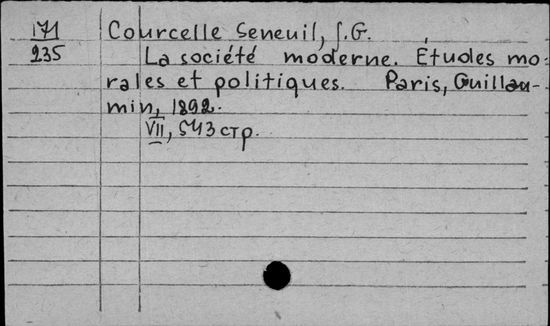 171 Courcelle Seneuil, J.G.
235 La société moderne. Études mo-
rales et politiques. Paris, Guillau-
min, 1892.
VII, 543 стр.